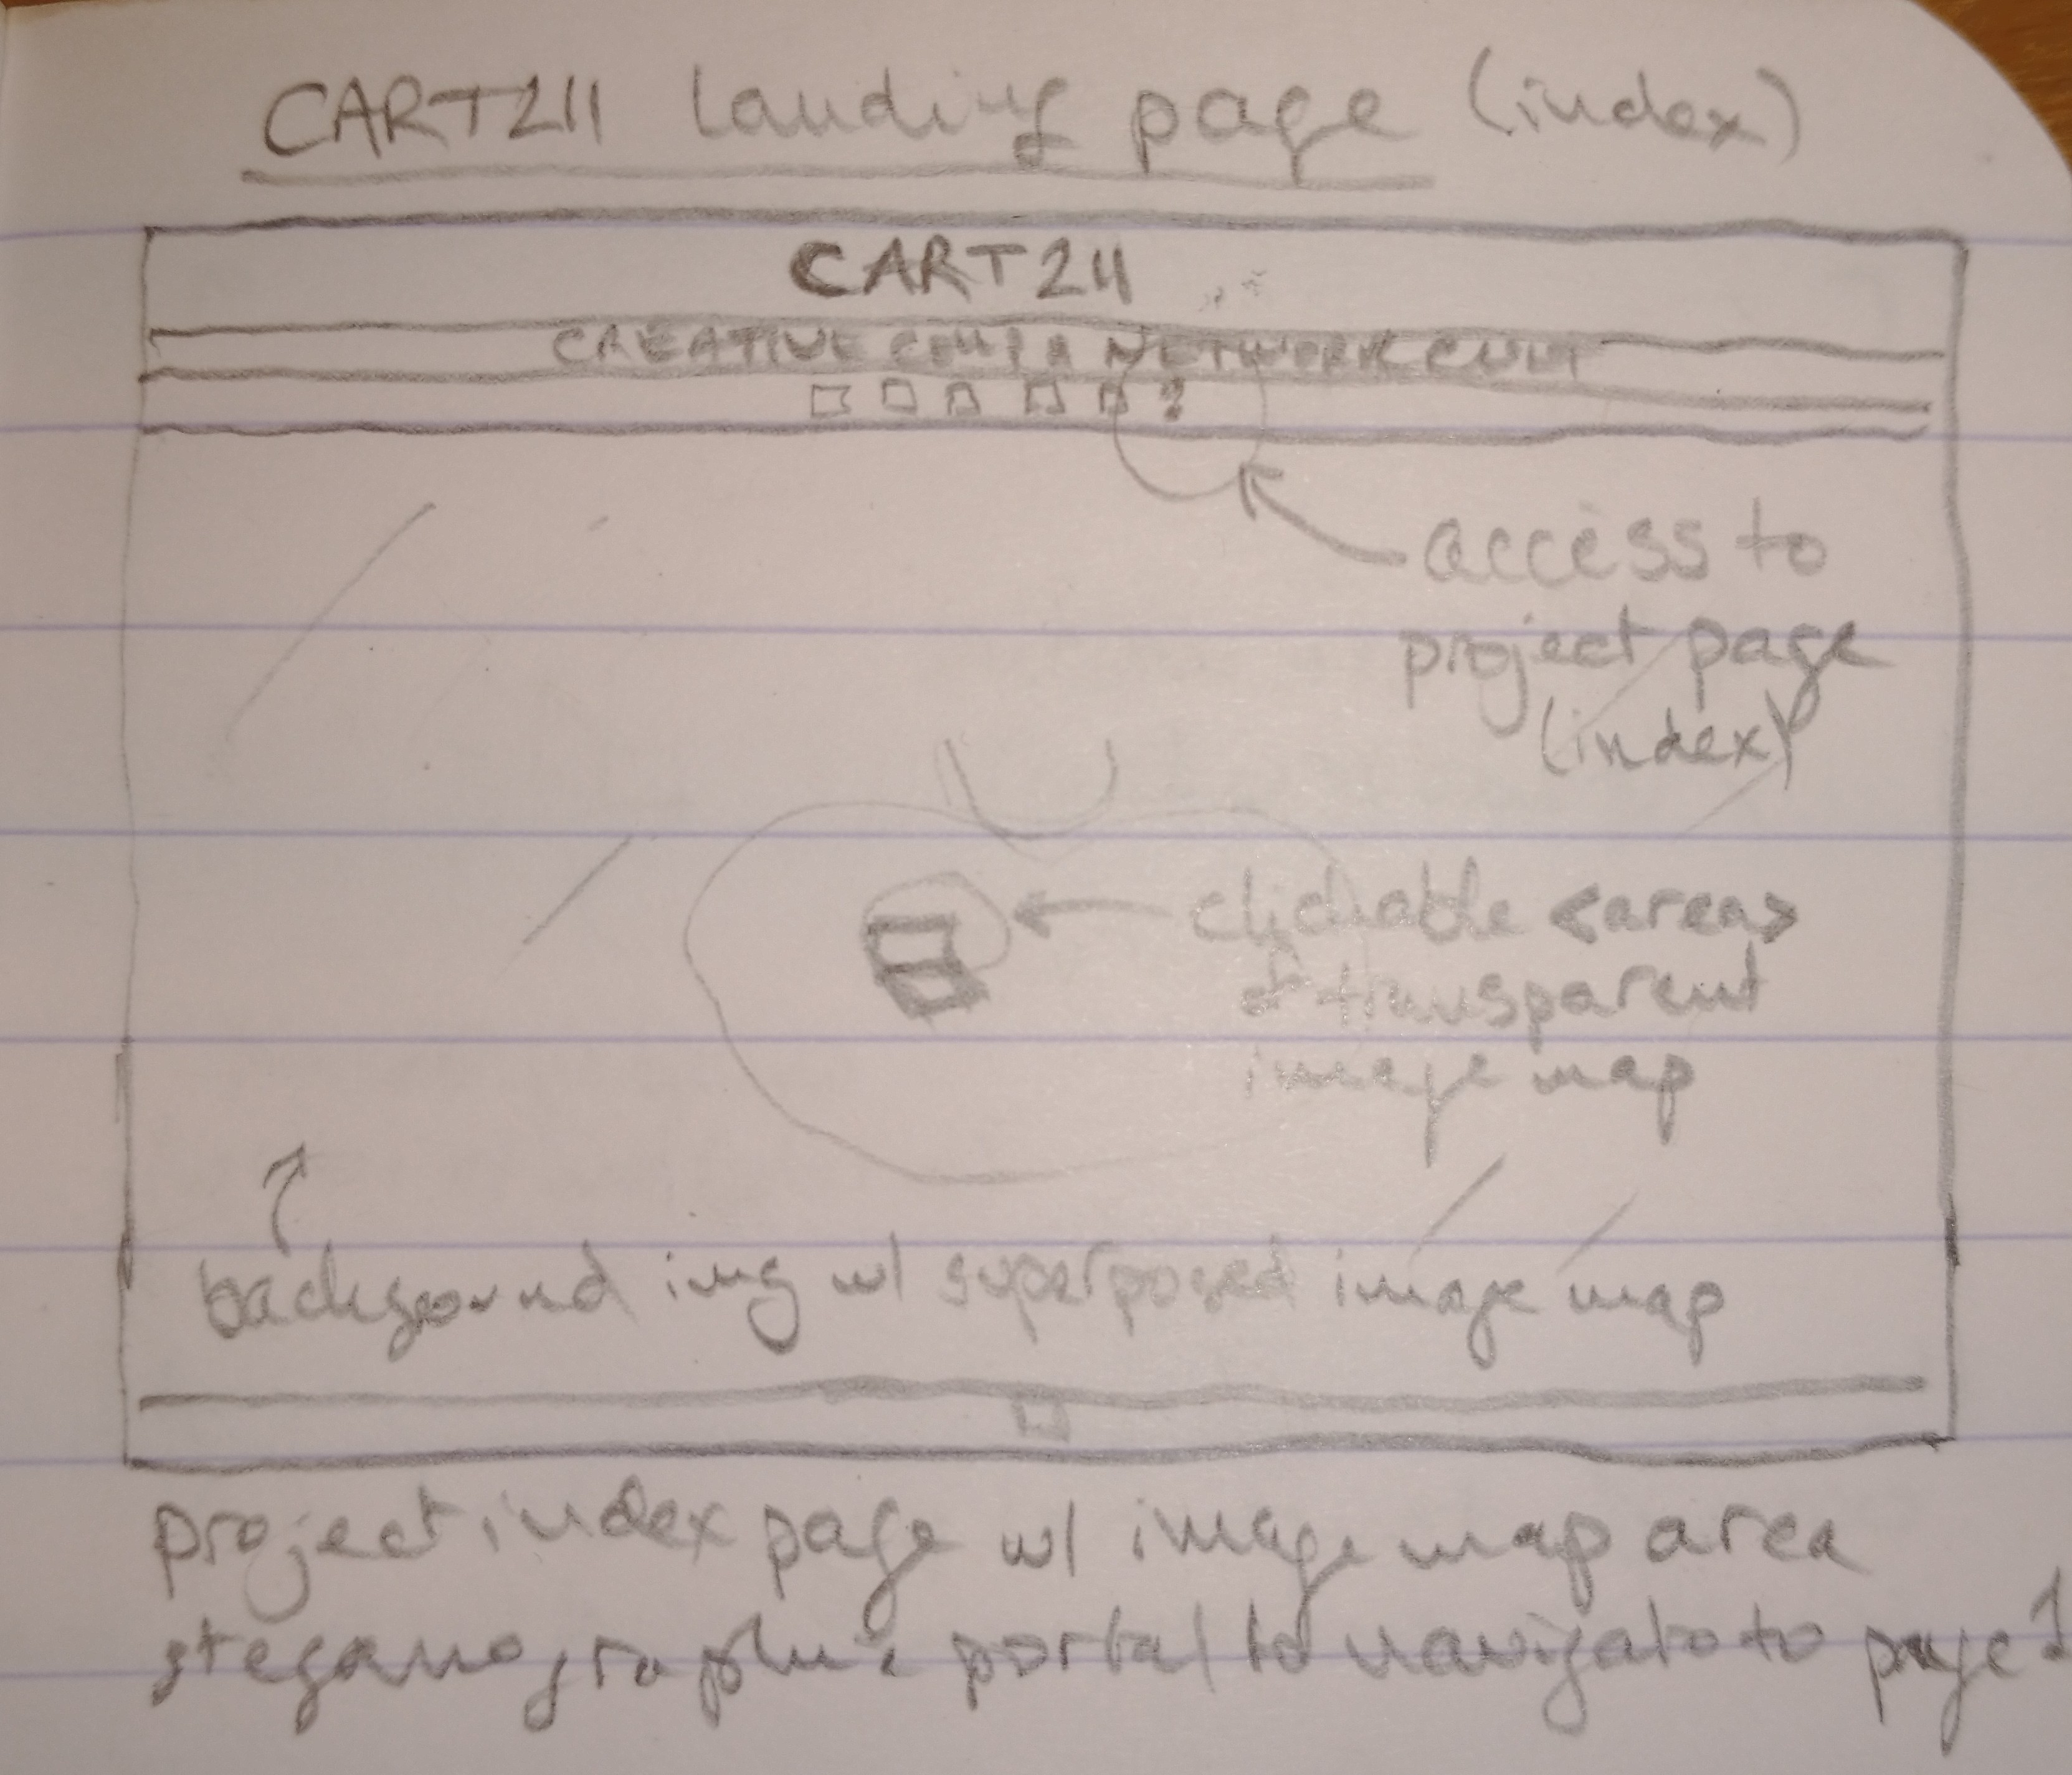 CART211 landing page (index)
CART 211
CREATIVE COMP & NETWORK CULT
?
access to
project page
(index)
clickable <area>
of transparent
image map
background img w/ superposed image map
project index page w/ image map area
steganographic portal to navigate to page 1